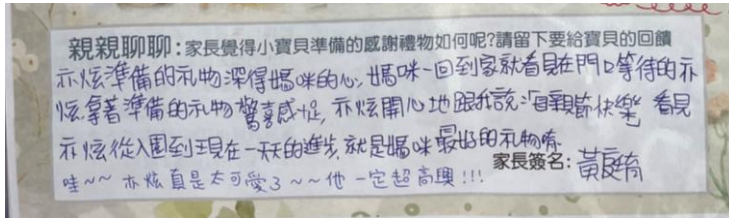 親親聊聊:家長覺得小寶貝準備的感謝禮物如何呢?請留下要給寶貝的回饋
亦炫準備的礼物深得媽咪的心,媽咪一回到家就看見在門口等待的亦
炫拿著準備的礼物驚喜感十足,亦炫開心地跟我說:"母親節快樂" 看見
亦炫從入園到現在一天天的進步,就是媽咪最好的礼物唷
家長簽名:黃庭育
哇~~亦炫真是太可愛了~~他一定超高興!!!